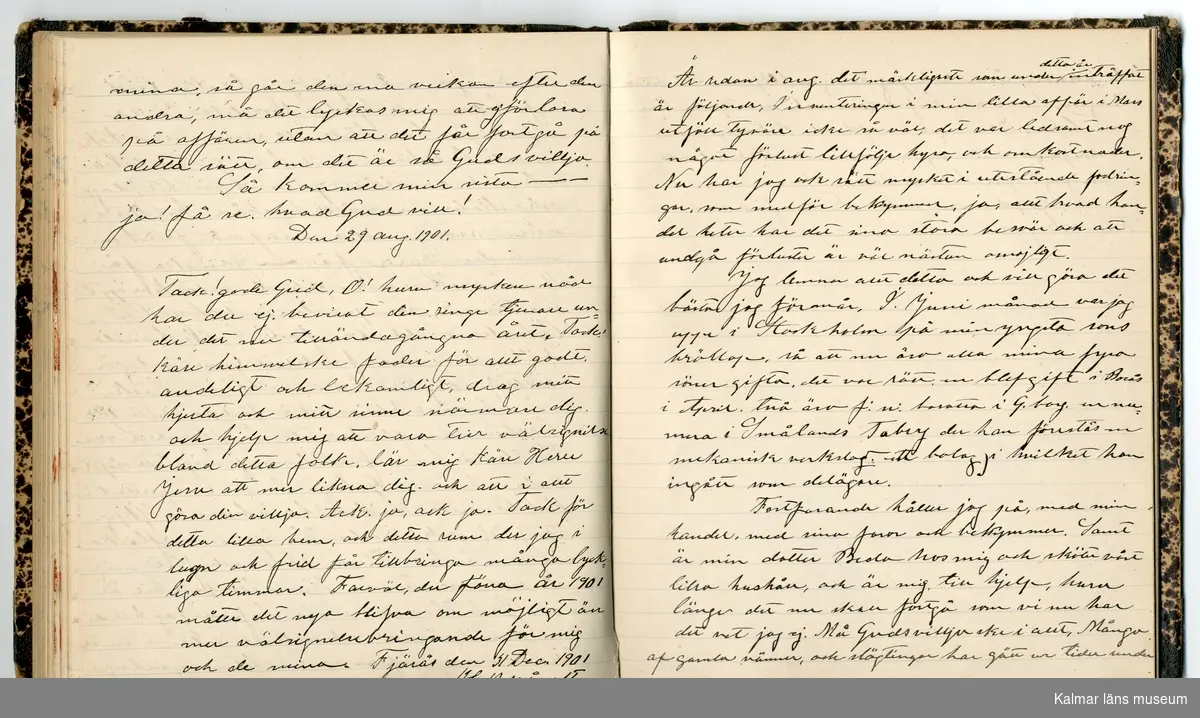 mina, så går den ena veckan efter den
andra, må det lyckas mig att ej förlora
på affären, utan att det får fortgå på
detta sätt, om det är så Guds villja
Så kommer min sista —
ja! få se, hvad Gud vill!
Den 29 aug. 1901.
Tack! gode Gud, O! huru mycken nåd
har du ej bevisat din ringe tjenare un-
der det nu tilländagångna året, Tack!
käre himmelske fader för allt godt,
andeligt och lekamligt, drag mitt
hjerta och mitt sinne närmare dig.
och hjelp mig att vara till välsignelse
bland detta folk, lär mig käre Herre
Jesu att mer likna dig. och att i allt
göra din villja. Ack. ja, ack ja. Tack för
detta lilla hem, och detta rum der jag i
lugn och frid får tillbringa många lyck-
liga timmar. Farväl, du förra år 1901
måtte det nya blifva om möjligt än
mer välsignelsebringande för mig
och de mina. Fjärås den 31 Dec. 1901
detta år
År redan i aug. det märkligaste som under inträffat
är följande, Inventeringen i min lilla affär i Mars
utföll tyvärr icke så väl, det var ledsamt nog
något förlust tillfölje hyra, och omkostnader.
Nu har jag ock rätt mycket i utestående fodrin-
gar, som medför bekymmer, ja, allt hvad han-
del heter har det sina stora besvär och att
undgå förluster är väl nästan omöjligt.
Jag lemnar allt detta och vill göra det
bästa jag förmår, I Juni månad var jag
uppe i Stockholm på min yngsta sons
bröllop, så att nu äro alla mina fyra
söner gifta, det var rätt. en blef gift i Borås
i April. två äro f. n. bosatta i G.borg. en nu-
mera i Smålands Taberg der han förestår en
mekanisk verkstad, ett bolag, i hvilket han
ingått som delägare.
Fortfarande håller jag på, med min
handel, med sina faror och bekymmer. Samt
är min dotter Beda hos mig och sköter vårt
lilla hushåll, och är mig till hjelp, huru
länge det nu skall fortgå som vi nu har
det vet jag ej. Må Guds villja ske i allt, Många
af gamla vänner, och slägtingar har gått ur tiden under
Kalmar läns museum